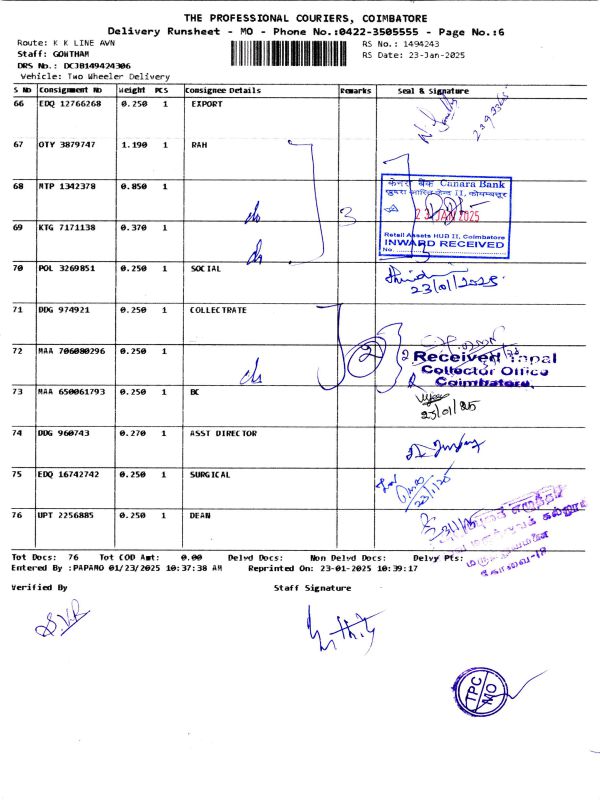 THE PROFESSIONAL COURIERS, COIMBATORE
Delivery Runsheet - MO - Phone No.:0422-3505555 - Page No.:6
Route: K K LINE AVN RS No.: 1494243
Staff: GOWTHAM RS Date: 23-Jan-2025
DRS No.: DCJB149424306
Vehicle: Two Wheeler Delivery
S No Consignment No Weight PCS Consignee Details Remarks Seal & Signature
66 EDQ 12766268 0.250 1 EXPORT
67 OTY 3879747 1.190 1 RAH
68 MTP 1342378 0.850 1
3
केनरा बैंक Canara Bank
23 JAN 2025
Retail Assets HUB II, Coimbatore
INWARD RECEIVED
No.
69 KTG 7171138 0.370 1
70 POL 3269851 0.250 1 SOCIAL
23/01/2025
71 DDG 974921 0.250 1 COLLECTRATE
72 MAA 706080296 0.250 1
2
Received Tapal
Collector Office
Coimbatore.
73 MAA 650061793 0.250 1 BC
23/01/25
74 DDG 960743 0.270 1 ASST DIRECTOR
75 EDQ 16742742 0.250 1 SURGICAL
23/1/25
76 UPT 2256885 0.250 1 DEAN
கோவை-18
Tot Docs: 76 Tot COD Amt: 0.00 Delvd Docs: Non Delvd Docs: Delvy Pts:
Entered By :PAPAMO 01/23/2025 10:37:38 AM Reprinted On: 23-01-2025 10:39:17
Verified By Staff Signature
S.V.R
TPC
MO